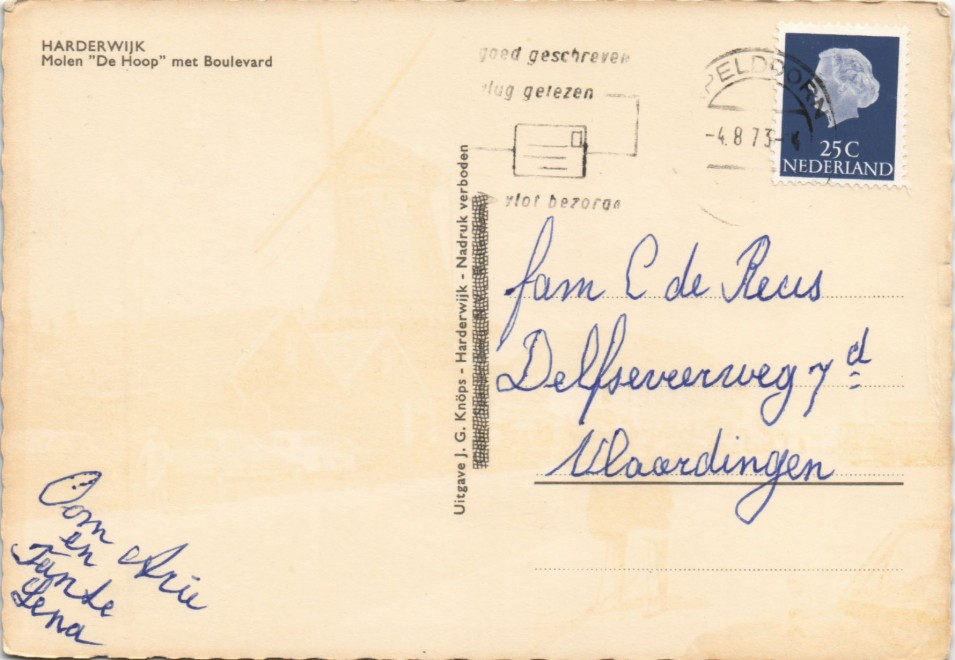 HARDERWIJK
Molen "De Hoop" met Boulevard
goed geschreven
vlug gelezen
vlot bezorgd
APELDOORN
-4.8.73-
25C
NEDERLAND
Uitgave J. G. Knöps - Harderwijk - Nadruk verboden
fam C de Reus
Delfseveerweg 7d
Vlaardingen
Oom
en Arie
Tante
Lena